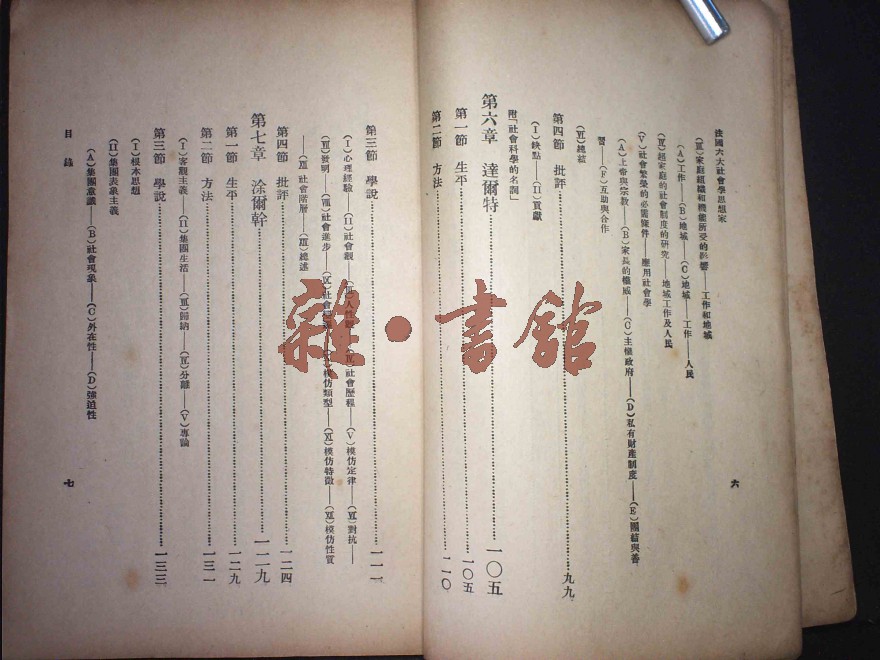 法國六大社會學思想家
六
(Ⅲ)家庭組織和機能所受的影響——工作和地域
(A)工作——(B)地域——(C)地域——工作——人民
(Ⅳ)超家庭的社會制度的研究——地域工作及人民
(Ⅴ)社會繁榮的必需條件——應用社會學
(A)上帝與宗教——(B)家長的權威——(C)主權政府——(D)私有財產制度——(E)團結與善
習——(F)互助與合作
(Ⅵ)總結
第四節 批評……九九
(Ⅰ)缺點——(Ⅱ)貢獻
附「社會科學的名詞」
第六章 達爾特……一〇五
第一節 生平……一〇五
第二節 方法……一一〇
第三節 學說……一一一
(Ⅰ)心理經驗——(Ⅱ)社會觀——社會歷程——(Ⅴ)模仿定律——(Ⅵ)對抗——
(Ⅶ)發明——(Ⅷ)社會進步——(Ⅸ)社會——模仿類型——(Ⅺ)模仿特徵——(Ⅻ)模仿性質
——社會階層——總述
第四節 批評……一二四
第七章 涂爾幹……一二九
第一節 生平……一二九
第二節 方法……一三一
(Ⅰ)客觀主義——(Ⅱ)集團生活——(Ⅲ)歸納——(Ⅳ)分離——(Ⅴ)專論
第三節 學說……一三三
(Ⅰ)根本思想
(Ⅱ)集團表象主義
(A)集團意識——(B)社會現象——(C)外在性——(D)強迫性
目錄
七
雜·書館